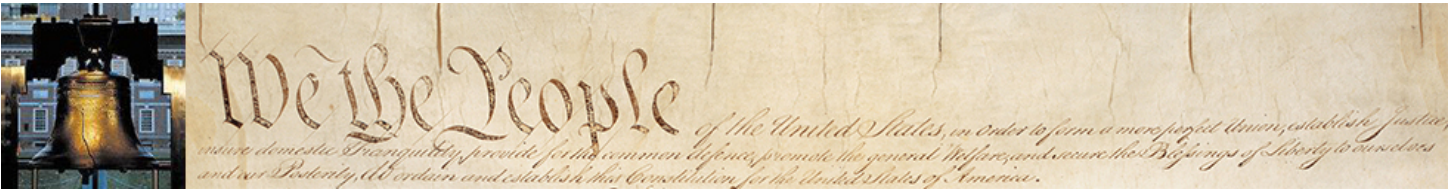 We the People of the United States, in Order to form a more perfect Union, establish Justice,
insure domestic Tranquility, provide for the common defence, promote the general Welfare, and secure the Blessings of Liberty to ourselves
and our Posterity, do ordain and establish this Constitution for the United States of America.